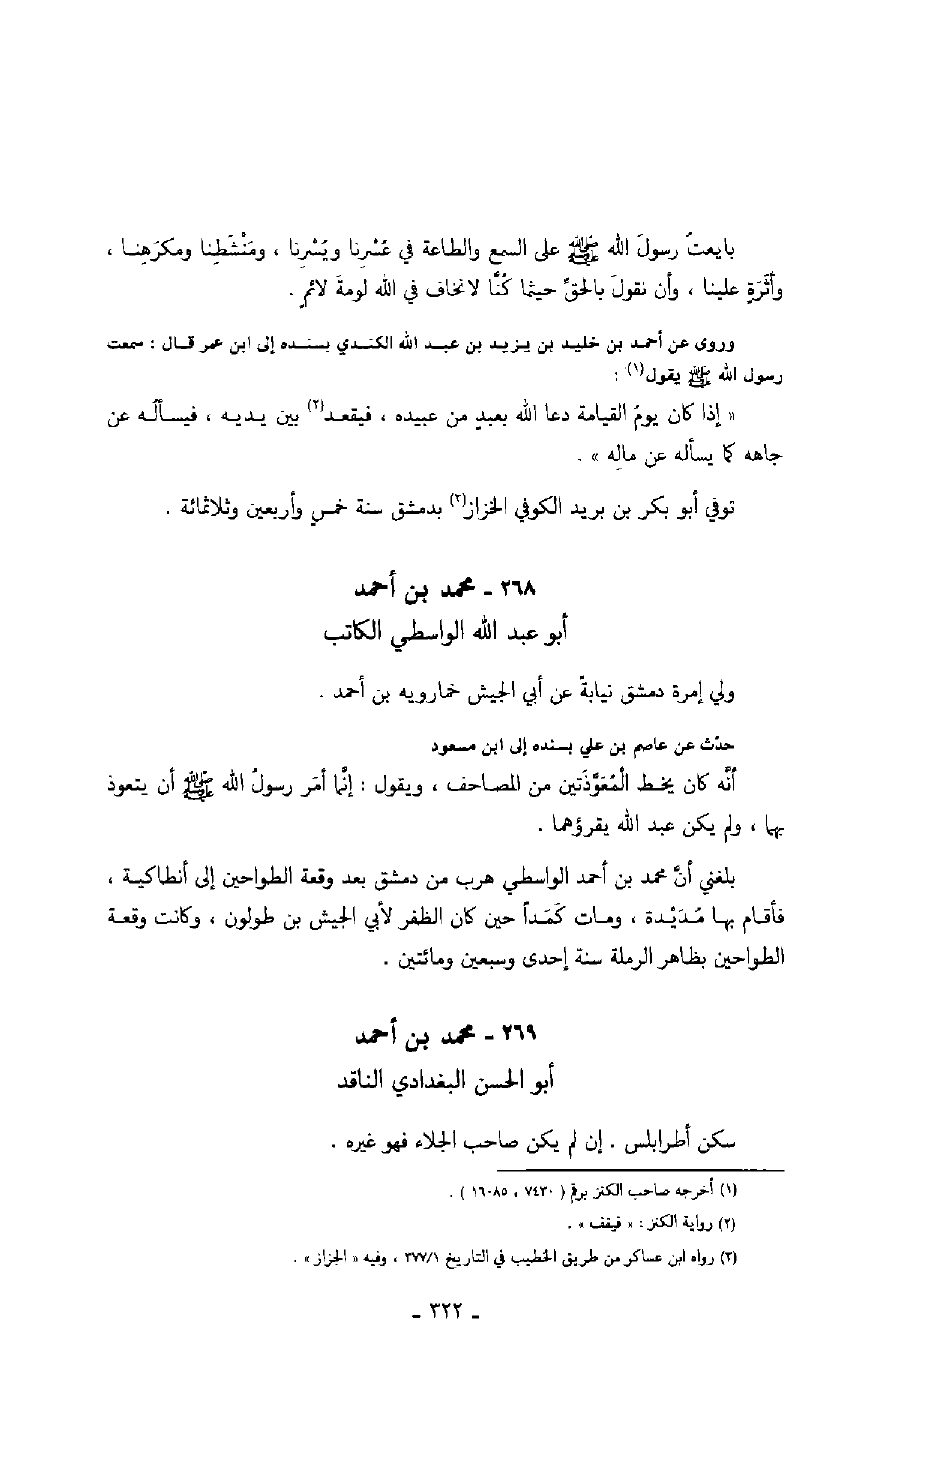 بايعتُ رسولَ الله ﷺ على السمع والطاعة في عُسْرِنا ويُسْرِنا ، ومَنْشَطِنا ومكرَهِنا ،
وأَثَرَةٍ علينا ، وأن نقولَ بالحقِّ حيثما كُنَّا لانخاف في الله لومةَ لائمٍ .
وروى عن أحمد بن خليد بن يزيد بن عبد الله الكندي بسنده إلى ابن عمر قال : سمعت
رسول الله ﷺ يقول(١) :
« إذا كان يومُ القيامة دعا الله بعبدٍ من عبيده ، فيقعد(٢) بين يديه ، فيسألُه عن
جاهه كما يسأله عن مالِه » .
توفي أبو بكر بن بريد الكوفي الخزاز(٣) بدمشق سنة خمسٍ وأربعين وثلاثمائة .
٢٦٨ ـ محمد بن أحمد
أبو عبد الله الواسطي الكاتب
ولي إمرة دمشق نيابةً عن أبي الجيش خمارويه بن أحمد .
حدّث عن عاصم بن علي بسنده إلى ابن مسعود
أنَّه كان يخط الْمُعَوَّذَتين من المصاحف ، ويقول : إنَّما أمَر رسولُ الله ﷺ أن يتعوذ
بها ، ولم يكن عبد الله يقرؤهما .
بلغني أنَّ محمد بن أحمد الواسطي هرب من دمشق بعد وقعة الطواحين إلى أنطاكية ،
فأقام بها مُدَيْدة ، ومات كَمَداً حين كان الظفر لأبي الجيش بن طولون ، وكانت وقعة
الطواحين بظاهر الرملة سنة إحدى وسبعين ومائتين .
٢٦٩ ـ محمد بن أحمد
أبو الحسن البغدادي الناقد
سكن أطرابلس . إن لم يكن صاحب الجلاء فهو غيره .
(١) أخرجه صاحب الكنز برقم ( ٧٤٣٠ ، ١٦٠٨٥ ) .
(٢) رواية الكنز : « فيقف » .
(٣) رواه ابن عساكر من طريق الخطيب في التاريخ ٣٧٧/١ ، وفيه « الجزاز » .
ـ ٣٢٢ ـ